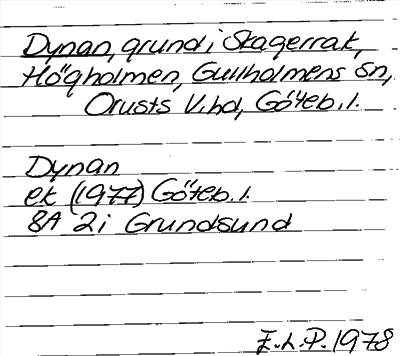 Dynan, grund i Skagerrak,
Högholmen, Gullholmens sn,
Orusts V.hd, Göteb.l.
Dynan
ek (1977) Göteb.l.
8A 2i Grundsund
E.L.P. 1978